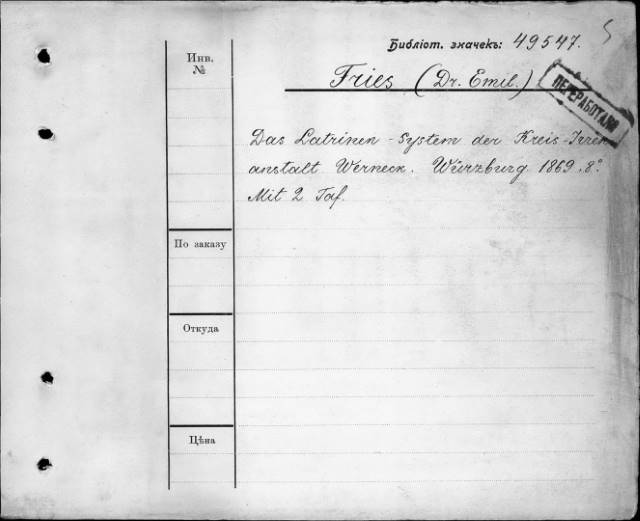 Библіот. значекъ: 49547.
Инв. №
Fries (Dr. Emil.)
ПЕРЕРАБОТАНО
Das Latrinen-System der Kreis-Irren
anstalt Werneck. Würzburg 1869. 8°.
Mit 2 Taf.
По заказу
Откуда
Цѣна